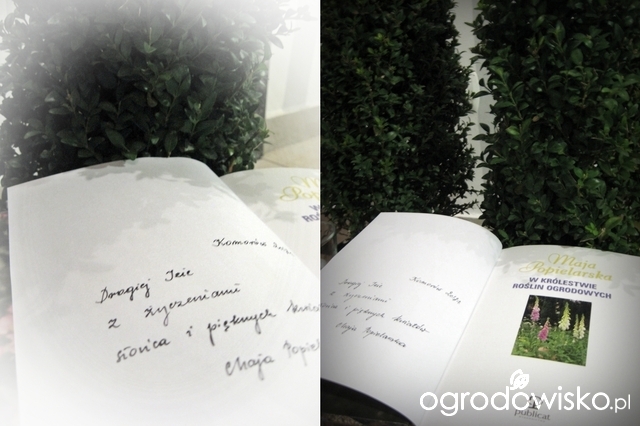 Komorów
Drogiej Icie
z życzeniami
słońca i pięknych
Maja
Maja
Popielarska
W
Komorów
Drogiej Icie
z życzeniami
słońca i pięknych kwiatów
Maja Popielarska
Maja
Popielarska
W KRÓLESTWIE
ROŚLIN OGRODOWYCH
publicat
ogrodowisko.pl